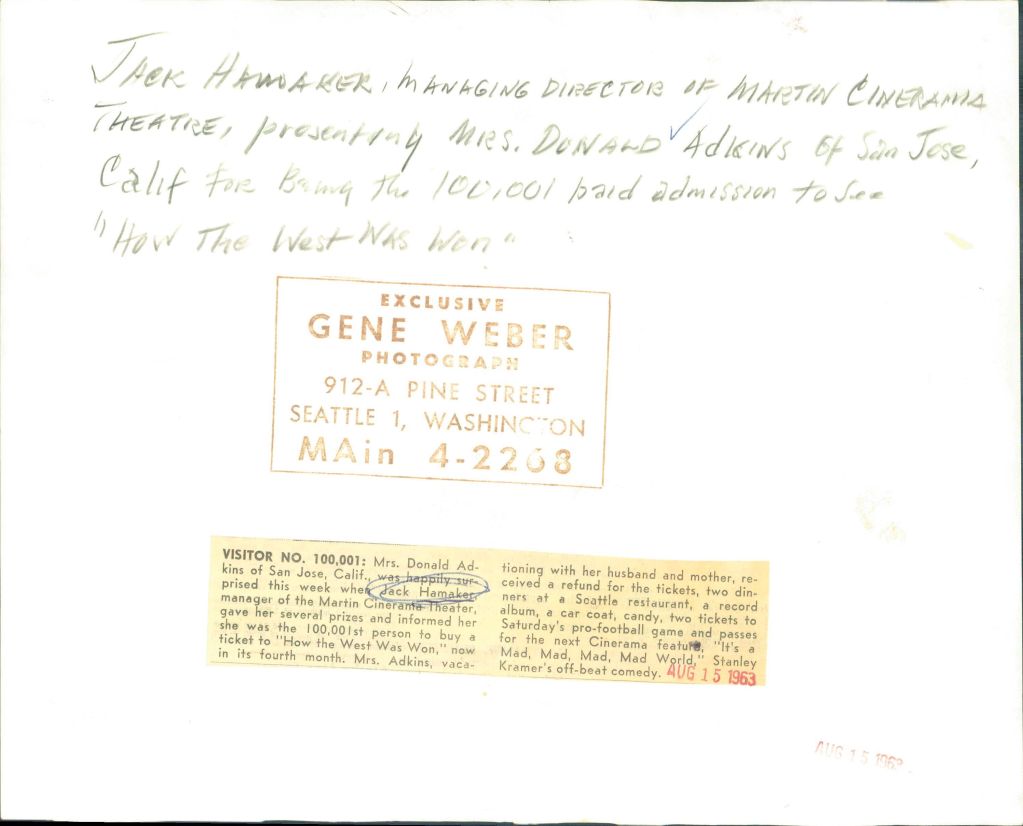 JACK HAMAKER, MANAGING DIRECTOR OF MARTIN CINERAMA
THEATRE, presenting MRS. DONALD ADKINS of San Jose,
Calif FOR Being the 100,001 paid admission to See
"HOW THE West WAS Won"
EXCLUSIVE
GENE WEBER
PHOTOGRAPH
912-A PINE STREET
SEATTLE 1, WASHINGTON
MAin 4-2268
VISITOR NO. 100,001: Mrs. Donald Ad-
kins of San Jose, Calif., was happily sur-
prised this week when Jack Hamaker,
manager of the Martin Cinerama Theater,
gave her several prizes and informed her
she was the 100,001st person to buy a
ticket to "How the West Was Won," now
in its fourth month. Mrs. Adkins, vaca-
tioning with her husband and mother, re-
ceived a refund for the tickets, two din-
ners at a Seattle restaurant, a record
album, a car coat, candy, two tickets to
Saturday's pro-football game and passes
for the next Cinerama feature, "It's a
Mad, Mad, Mad, Mad World," Stanley
Kramer's off-beat comedy. AUG 15 1963
AUG 15 1963